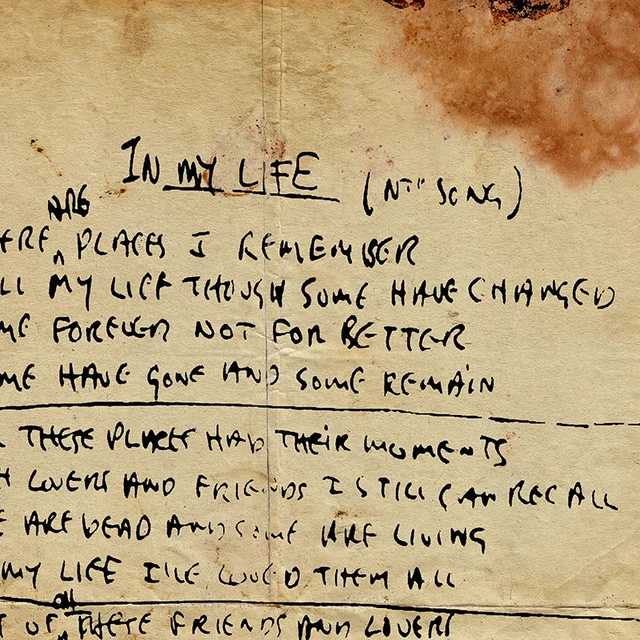 IN MY LIFE (NT" SONG)
ARE
ERE ^ PLACES I REMEMBER
LL MY LIFE THOUGH SOME HAVE CHANGED
ME FOREVER NOT FOR BETTER
ME HAVE GONE AND SOME REMAIN
THESE PLACES HAD THEIR MOMENTS
H LOVERS AND FRIENDS I STILL CAN RECALL
E ARE DEAD AND SOME ARE LIVING
MY LIFE I'LE LOVED THEM ALL
all
T OF ^ THESE FRIENDS AND LOVERS